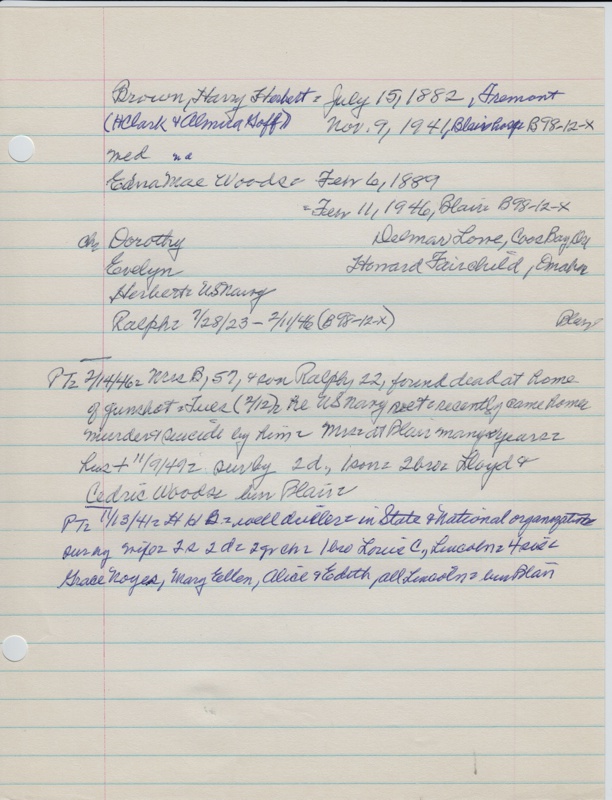 Brown, Harry Herbert = July 15, 1882, Fremont
(H Clark & Almira Goff)) Nov. 9, 1941, Blair hosp B98-12-X
med na
Edna Mae Woods = Feb 6, 1889
= Feb 11, 1946, Blair = B98-12-X
ch Dorothy Delmar Lowe, Coos Bay, Or
Evelyn Howard Fairchild, Omaha
Herbert = US Navy
Ralph = 7/28/23 - 2/11/46 (B98-12-X) Blair
PT = 2/14/46 = Mrs B, 57, & son Ralph, 22, found dead at home
of gunshot = Tues (2/12) = He US Navy vet = recently came home
murder & suicide by him = Mrs = at Blair many years =
hus + 11/9/49 = surby 2 d., 1 son = 2 bro = Lloyd &
Cedric Woods = bur Blair =
PT = 11/13/41 = H H B = well driller = in State & National organizations
surby wife = 2 s 2 d = 2 gr ch = 1 bro Louie C., Lincoln = 4 sis =
Grace Noyes, Mary Ellen, Alice & Edith, all Lincoln = bur Blair